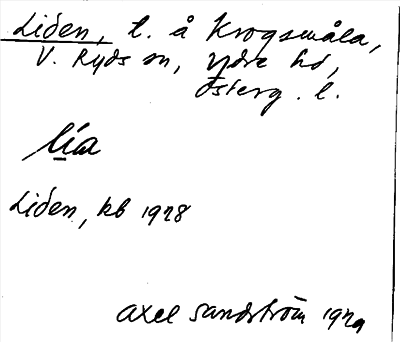 Liden, t. å Krogsmåla,
V. Ryds sn, Ydre hd,
Österg. l.
lía
Liden, kb 1928
Axel Sandström 1929